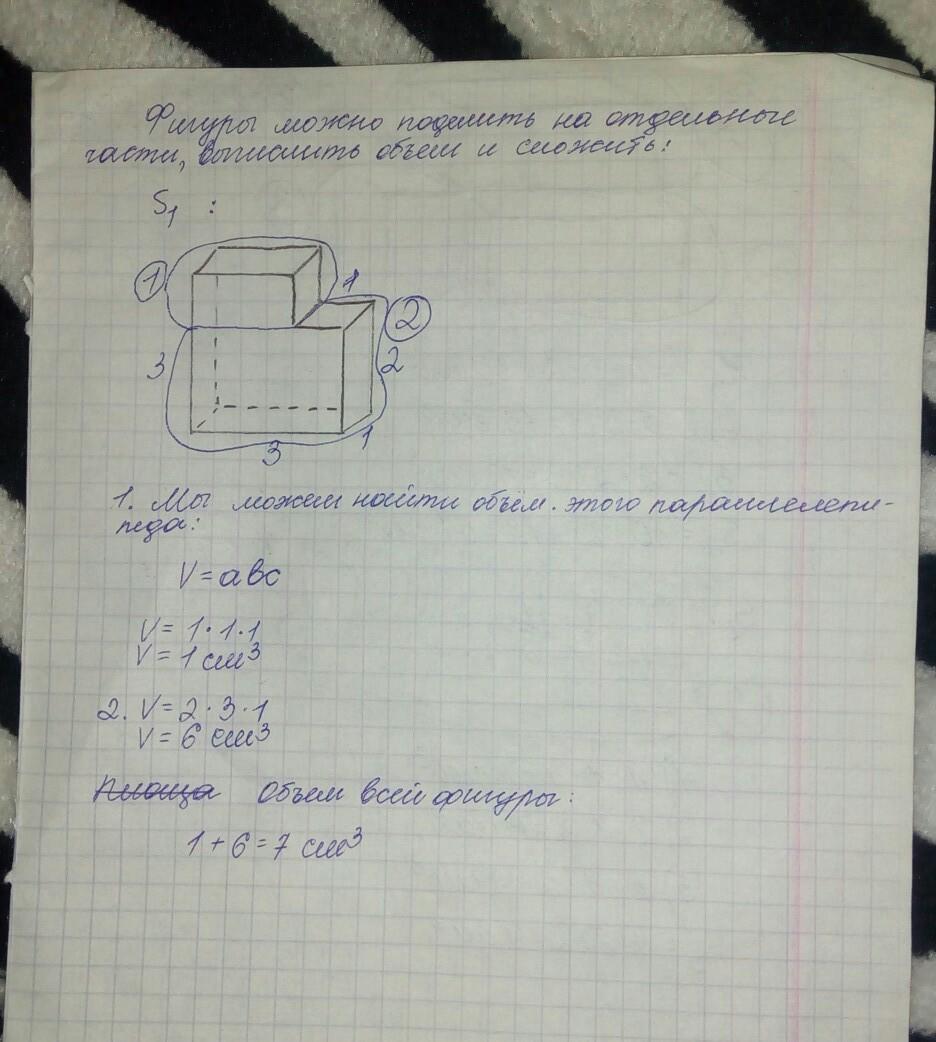 Фигуры можно поделить на отдельные
части, вычислить объем и сложить:
S₁ :
1
1
2
3
2
3
1
1. Мы можем найти объём. этого параллелепи-
педа:
V = abc
V = 1 · 1 · 1
V = 1 см³
2. V = 2 · 3 · 1
V = 6 см³
Площа Объем всей фигуры:
1 + 6 = 7 см³